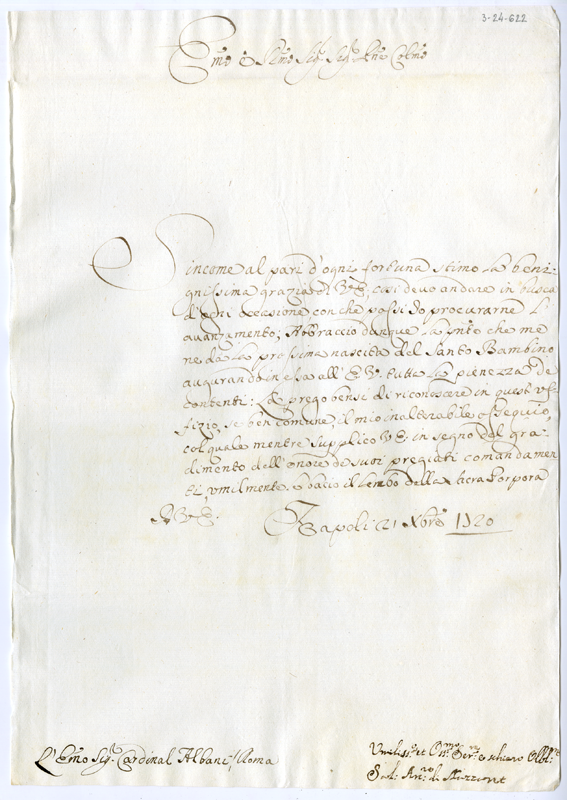 3-24-622
Emo e Rmo Sig.r Sig.r Pne Colmo
Sincome al pari d'ogni fortuna stimo la beni-
gnissima grazia di V.E., così devo andare in busca
d'ogni occasione, con che possi Io procurarne l'
avanzamento; Abbraccio dunque la che me
ne dà la prossima nascita del Santo Bambino
augurando in essa all'E.V. tutta la pienezza de
contenti: La prego bensì di riconoscere in quest'uf-
fizio, se ben comune, il mio inalterabile ossequio,
col quale mentre supplico V.E. in segno del gra-
dimento dell'onore de suoi pregiati comandamen
ti, umilmente bacio il lembo della Sacra Porpora
D V.E.
Napoli 21 Nbre 1720
L'Emo Sig.r Cardinal Albani, Roma
Umiliss.o et Serv.re e schiavo Obbl.
di